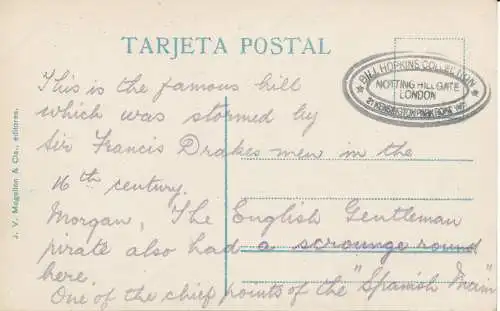 TARJETA POSTAL
★ BILL HOPKINS COLLECTION ★
NOTTING HILL GATE
LONDON
KENSINGTON PARK ROAD
J. V. Mogollon & Cia., editores.
This is the famous hill
which was stormed by
Sir Francis Drakes men in the
16th century.
Morgan, The English Gentleman
pirate also had a scrounge round
here.
One of the chief points of the "Spanish Main"